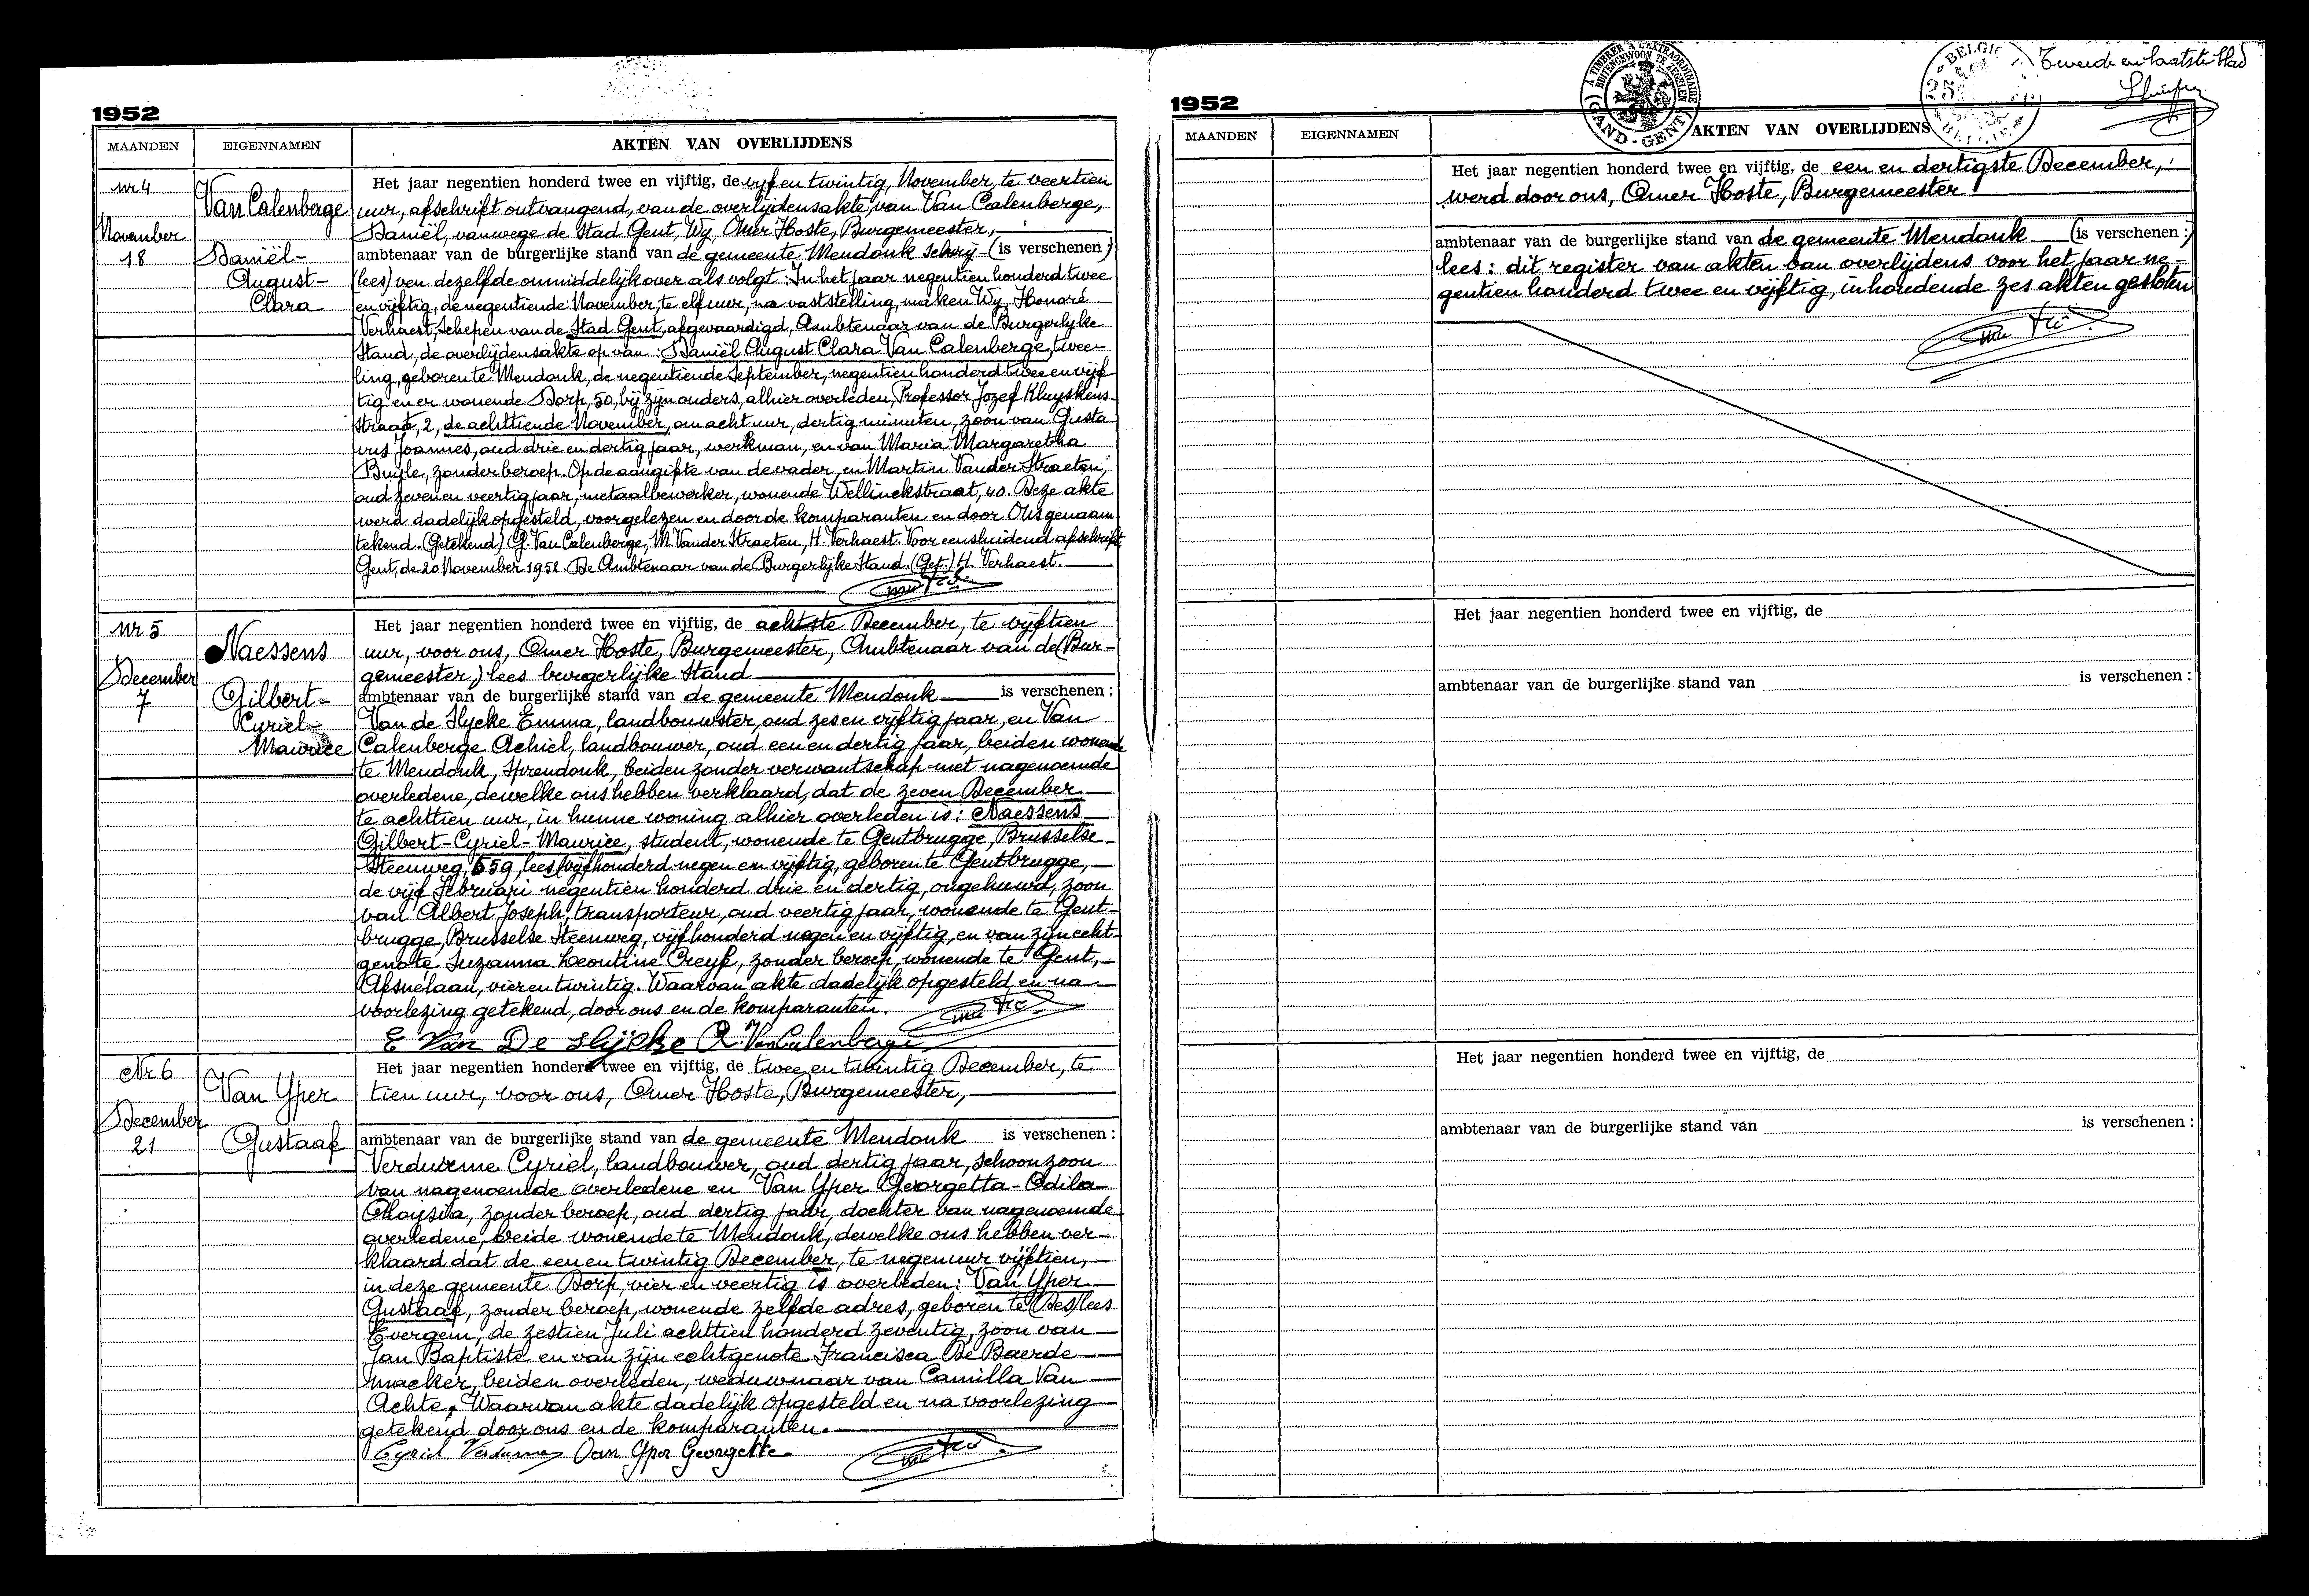 1952
MAANDEN EIGENNAMEN AKTEN VAN OVERLIJDENS
nr 4
November
18
Van Calenberge
Daniël-
August-
Clara
Het jaar negentien honderd twee en vijftig, de vijf en twintig, November, te veertien
uur, afschrift ontvangend, van de overlijdensakte, van Van Calenberge,
Daniël, vanwege de Stad Gent, Wij, Omer Hoste, Burgemeester,
ambtenaar van de burgerlijke stand van de gemeente Mendonk schrij- (is verschenen)
(lees) ven dezelfde onmiddelijk over als volgt: In het jaar negentien honderd twee
en vijftig, de negentiende November, te elf uur, na vaststelling, maken Wij, Honoré
Verhaest, Schepen van de Stad Gent, afgevaardigd, Ambtenaar van de Burgerlijke
Stand, de overlijdensakte op van: Daniël August Clara Van Calenberge, twee-
ling, geboren te Mendonk, de negentiende September, negentien honderd twee en vijf
tig en er wonende Dorp, 50, bij zijn ouders, alhier overleden, Professor Jozef Kluyskens-
straat, 2, de achttiende November, om acht uur, dertig minuten, zoon van Gusta
vus Joannes, oud drie en dertig jaar, werkman, en van Maria Margaretha
Buyle, zonder beroep. Op de aangifte van de vader, en Martin Vander Straeten,
oud zeven en veertig jaar, metaalbewerker, wonende Wellinckstraat, 40. Deze akte
werd dadelijk opgesteld, voorgelezen en door de komparanten en door Ons genaam
tekend. (Getekend) G. Van Calenberge, M. Vander Straeten, H. Verhaest. Voor eensluidend afschrift
Gent, de 20 November 1952. De Ambtenaar van de Burgerlijke Stand. (Get.) H. Verhaest.
Nr 5
December
7
Naessens
Gilbert-
Cyriel-
Maurice
Het jaar negentien honderd twee en vijftig, de achtste December, te vijftien
uur, voor ons, Omer Hoste, Burgemeester, Ambtenaar van de (Bur-
gemeester,) lees burgerlijke Stand
ambtenaar van de burgerlijke stand van de gemeente Mendonk is verschenen:
Van de Slycke Emma, landbouwster, oud zes en vijftig jaar, en Van
Calenberge Achiel, landbouwer, oud een en dertig jaar, beiden wonende
te Mendonk, Spendonk, beiden zonder verwantschap met nagenoemde
overledene, dewelke ons hebben verklaard, dat de zeven December
te achttien uur, in hunne woning alhier overleden is: Naessens
Gilbert-Cyriel-Maurice, student, wonende te Gentbrugge, Brusselse
Steenweg, 559, lees vijfhonderd negen en vijftig, geboren te Gentbrugge,
de vijf Februari negentien honderd drie en dertig, ongehuwd, zoon
van Albert Joseph, transporteur, oud veertig jaar, wonende te Gent-
brugge, Brusselse Steenweg, vijfhonderd negen en vijftig, en van zijn echt-
genote Suzanna Leontine Creyf, zonder beroep, wonende te Gent,
Afsnelaan, vier en twintig. Waarvan akte dadelijk opgesteld en na
voorlezing getekend, door ons en de komparanten.
E Van De Slijcke A. Van Calenberge
Nr 6
December
21
Van Yper
Gustaaf
Het jaar negentien honderd twee en vijftig, de twee en twintig December, te
tien uur, voor ons, Omer Hoste, Burgemeester,
ambtenaar van de burgerlijke stand van de gemeente Mendonk is verschenen:
Verdurme Cyriel, landbouwer, oud dertig jaar, schoonzoon
van nagenoemde overledene en Van Yper Georgetta-Odila
Oloysia, zonder beroep, oud dertig jaar, dochter van nagenoemde
overledene, beide wonende te Mendonk, dewelke ons hebben ver-
klaard dat de een en twintig December, te negen uur vijftien,
in deze gemeente Dorp, vier en veertig is overleden: Van Yper
Gustaaf, zonder beroep, wonende zelfde adres, geboren te (Des) lees
Evergem, de zestien Juli achttien honderd zeventig, zoon van
Jan Baptiste en van zijn echtgenote Francisca De Baerde-
macker, beiden overleden, weduwnaar van Camilla Van
Achte. Waarvan akte dadelijk opgesteld en na voorlezing
getekend door ons en de komparanten.
Cyriel Verdurme Van Yper Georgette
Tweede en laatste blad
À TIMBRER À L'EXTRAORDINAIRE
BUITENGEWOON TE ZEGELEN
GAND-GENT
BELGIË 25 BELGIË
1952
MAANDEN EIGENNAMEN AKTEN VAN OVERLIJDENS
Het jaar negentien honderd twee en vijftig, de een en dertigste December,
werd door ons, Omer Hoste, Burgemeester
ambtenaar van de burgerlijke stand van de gemeente Mendonk (is verschenen:)
lees: dit register van akten van overlijdens voor het jaar ne-
gentien honderd twee en vijftig, inhoudende zes akten gesloten
Het jaar negentien honderd twee en vijftig, de
ambtenaar van de burgerlijke stand van is verschenen:
Het jaar negentien honderd twee en vijftig, de
ambtenaar van de burgerlijke stand van is verschenen: